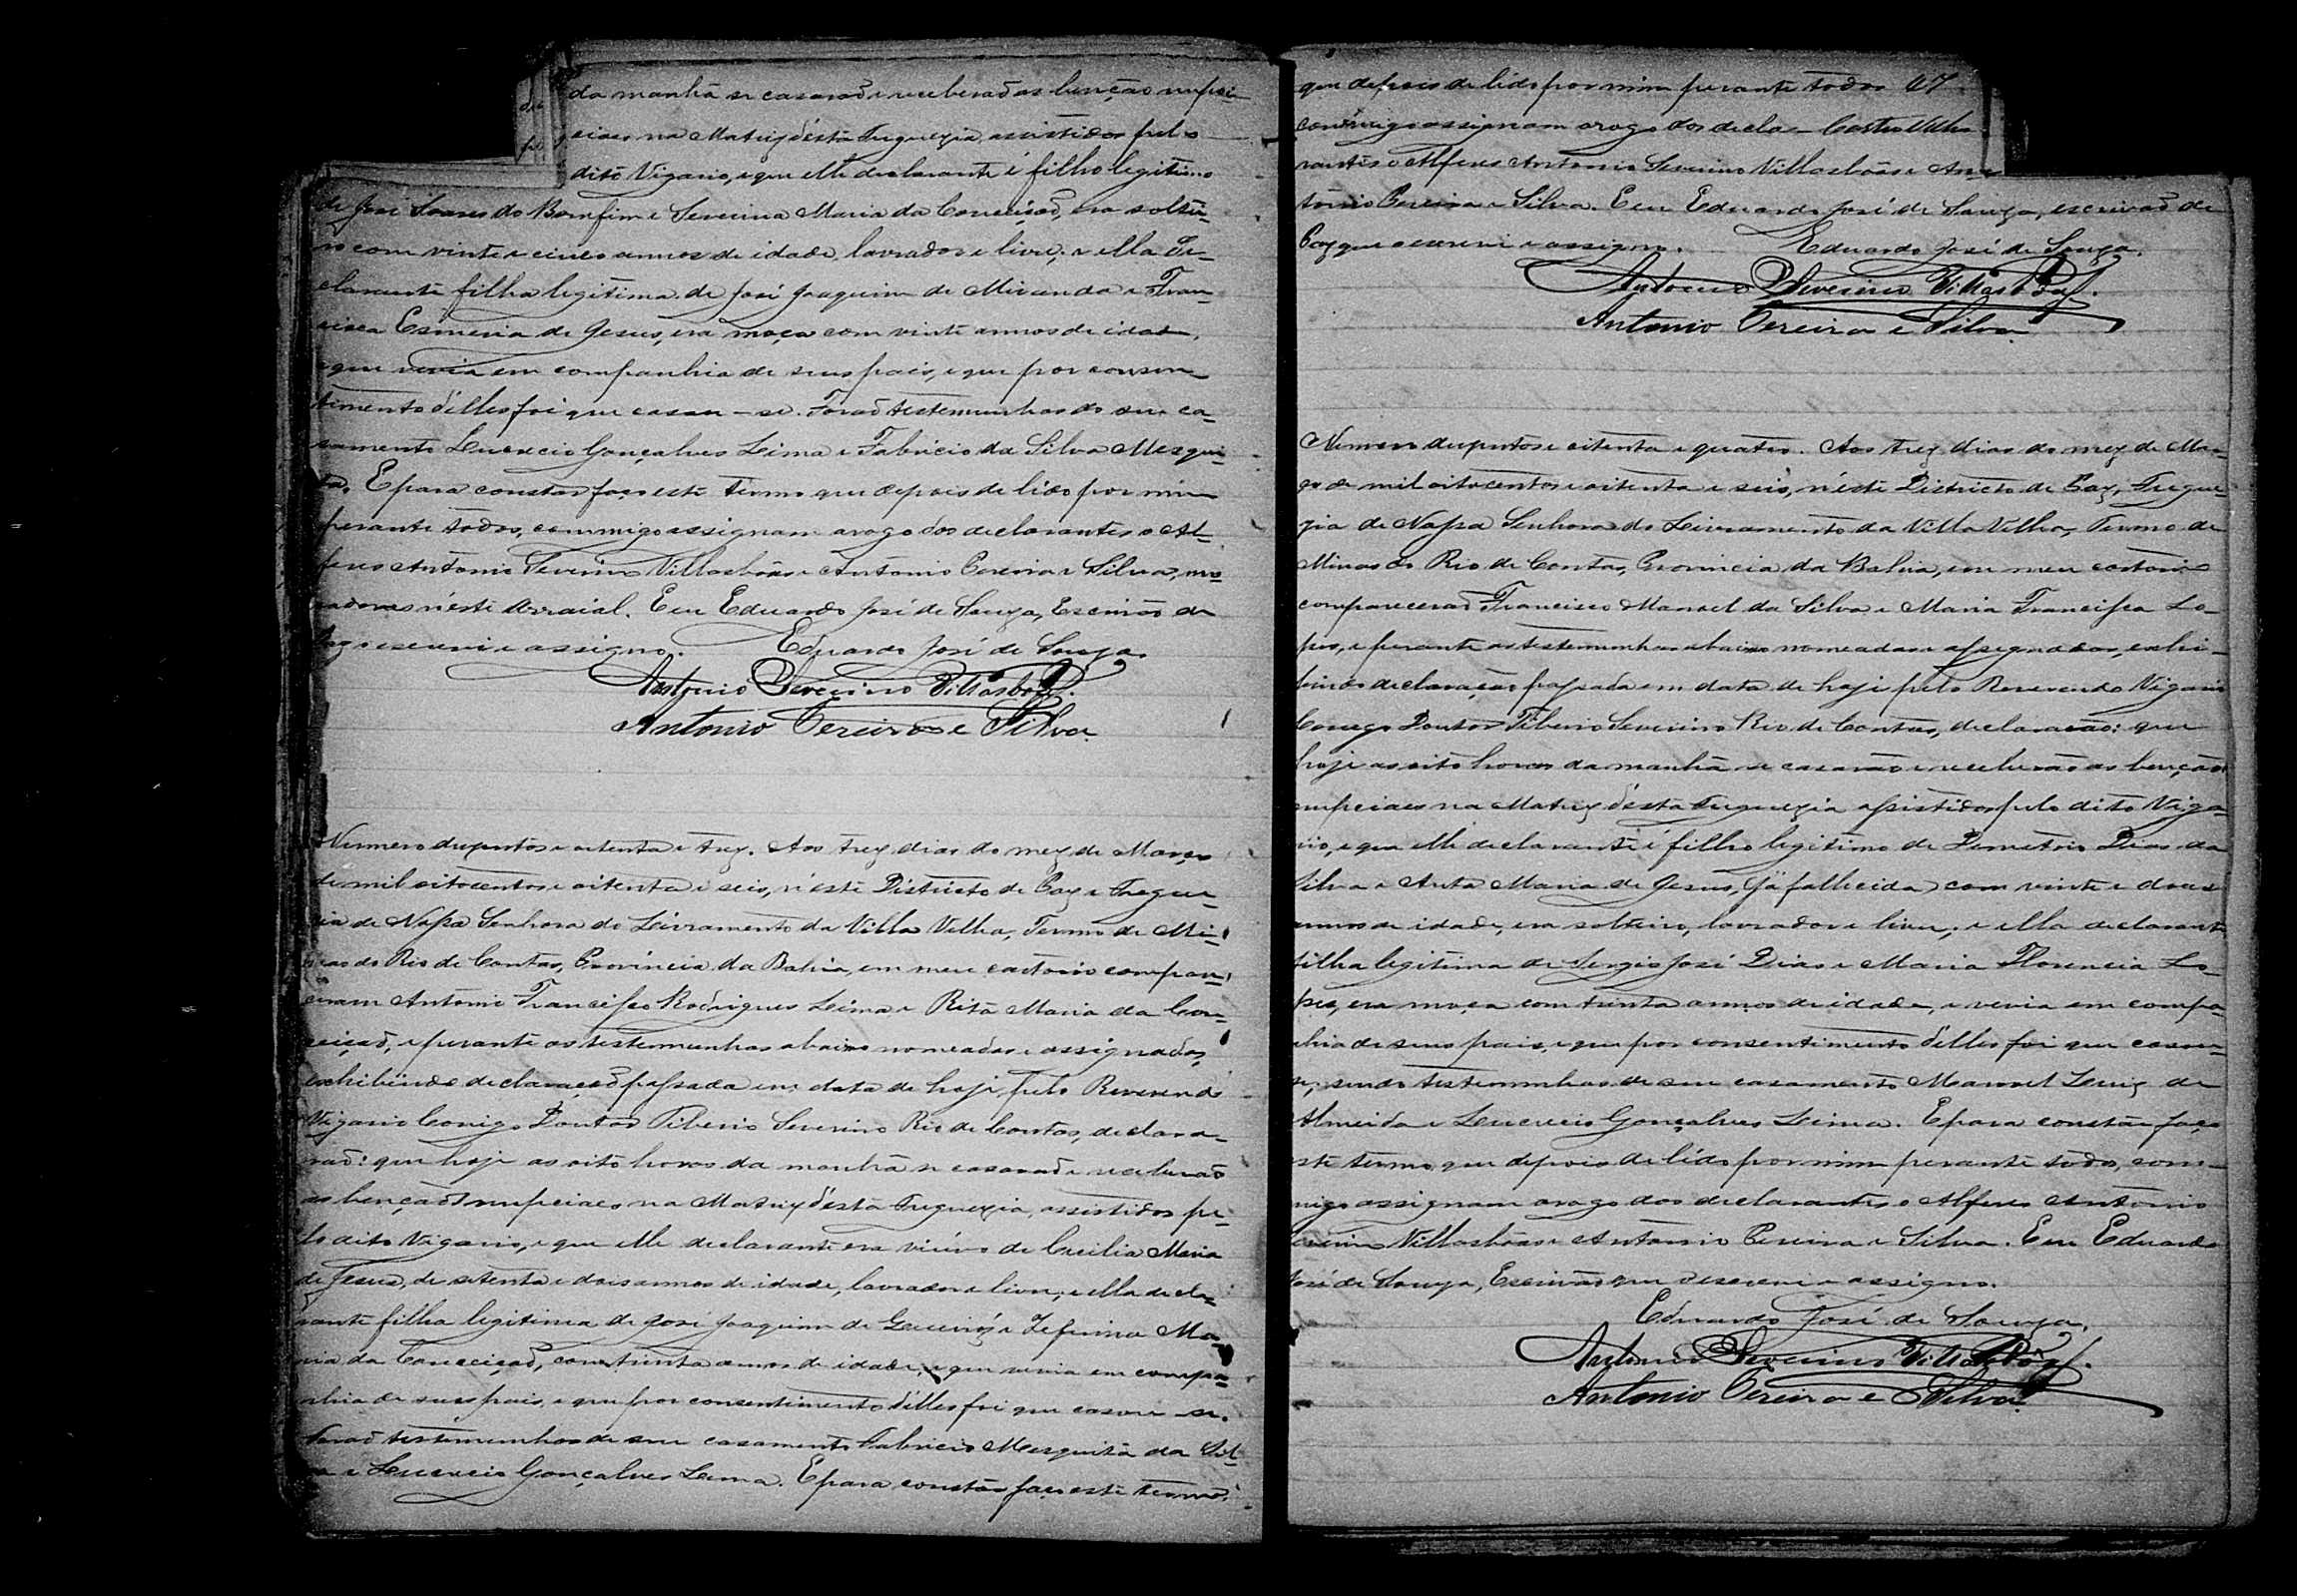 da manhã se casarão e receberão as benção nupci-
ciaes na Matriz d'esta Freguezia, assistidos pelo
dito Vigario, e que elle declarante é filho legitimo
de José Soares do Bomfim e Severina Maria da Conceição, era soltei-
ro com vinte e cinco annos de idade, lavrador e livre; e ella de-
clarante filha legitima de José Joaquim de Miranda e Fran-
cisca Esmeria de Jesus, era moça com vinte annos de idade,
e que vivia em companhia de seus pais, e que por consen-
timento d'elles foi que casou-se. Forão testemunhas do seu ca-
samento Leucrecio Gonçalves Lima e Fabricio da Silva Mesqui-
ta. E para constar faço este termo que depois de lido por mim
perante todos, commigo assignam arogo dos declarantes o Al-
feres Antonio Severino Villasbôas e Antonio Pereira e Silva, mo-
radores n'este Arraial. Eu Eduardo José de Souza, Escrivão de
Paz o escrevi e assigno. Eduardo José de Souza.
Antonio Severino Villasbôas.
Antonio Pereira e Silva.
Numero duzentos e oitenta e trez. Aos trez dias do mez de Março
de mil oitocentos e oitenta e seis, n'este Districto de Paz e Fregue-
zia de Nossa Senhora do Livramento da Villa Velha, Termo de Mi-
nas do Rio de Contas, Provincia da Bahia, em meu cartorio compare-
ceram Antonio Francisco Rodrigues Lima e Rita Maria da Con-
ceição, e perante as testemunhas abaixo nomeadas e assignadas,
exhibindo declaração passada em data de hoje pelo Reverendo
Vigario Conego Doutor Tiberio Severino Rio de Contas, declara-
rão: que hoje as oito horas da manhã se casarão e receberão
as bençãos nupciaes na Matriz d'esta Freguezia, assistidos pe-
lo dito Vigario, e que elle declarante era viúvo de Cecilia Maria
de Jesus, de setenta e dois annos de idade, lavrador e livre; e ella decla-
rante filha legitima de José Joaquim de Queiroz e Zeferina Ma-
ria da Conceição, com trinta annos de idade, e que vivia em compa-
nhia de seus pais, e que por consentimento d'elles foi que casou-se.
Forão testemunhas de seu casamento Fabricio Mesquita da Sil-
va e Leucrecio Gonçalves Lima. E para constar faço este termo,
que depois de lido por mim perante todos 67
commigo assignam arogo dos decla- Castro Villa
rantes o Alferes Antonio Severino Villasbôas e An-
tonio Pereira e Silva. Eu Eduardo José de Souza, escrivão de
Paz que o escrevi e assigno. Eduardo José de Souza.
Antonio Severino Villasbôas.
Antonio Pereira e Silva.
Numero duzentos e oitenta e quatro. Aos trez dias do mez de Mar-
ço de mil oitocentos e oitenta e seis, n'este Districto de Paz, Fregue-
zia de Nossa Senhora do Livramento da Villa Velha, Termo de
Minas do Rio de Contas, Provincia da Bahia, em meu cartorio
comparecerão Francisco Manoel da Silva e Maria Francisca Lo-
pes, e perante as testemunhas abaixo nomeadas e assignadas, exhi-
bindo declaração passada em data de hoje pelo Reverendo Vigario
Conego Doutor Tiberio Severino Rio de Contas, declararão: que
hoje as oito horas da manhã se casarão e receberão as bençãos
nupciaes na Matriz d'esta Freguezia assistidos pelo dito Viga-
rio, e que elle declarante é filho legitimo de Demetrio Dias da
Silva e Anta Maria de Jesus, (já fallecida) com vinte e dous
annos de idade, era solteiro, lavrador e livre; e ella declarante
filha legitima de Sergio José Dias e Maria Florencia Lo-
pes, era moça com trinta annos de idade, e vivia em compa-
nhia de seus pais, e que por consentimento d'elles foi que casou-
se, sendo testemunhas de seu casamento Manoel Luiz de
Almeida e Leucrecio Gonçalves Lima. E para constar faço
este termo, que depois de lido por mim perante todos, com-
migo assignam arogo dos declarantes o Alferes Antonio
Severino Villasbôas e Antonio Pereira e Silva. Eu Eduardo
José de Souza, Escrivão que o escrevi e assigno.
Eduardo José de Souza.
Antonio Severino Villasbôas.
Antonio Pereira e Silva.